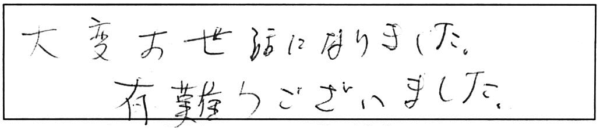 大変お世話になりました。
有難うございました。